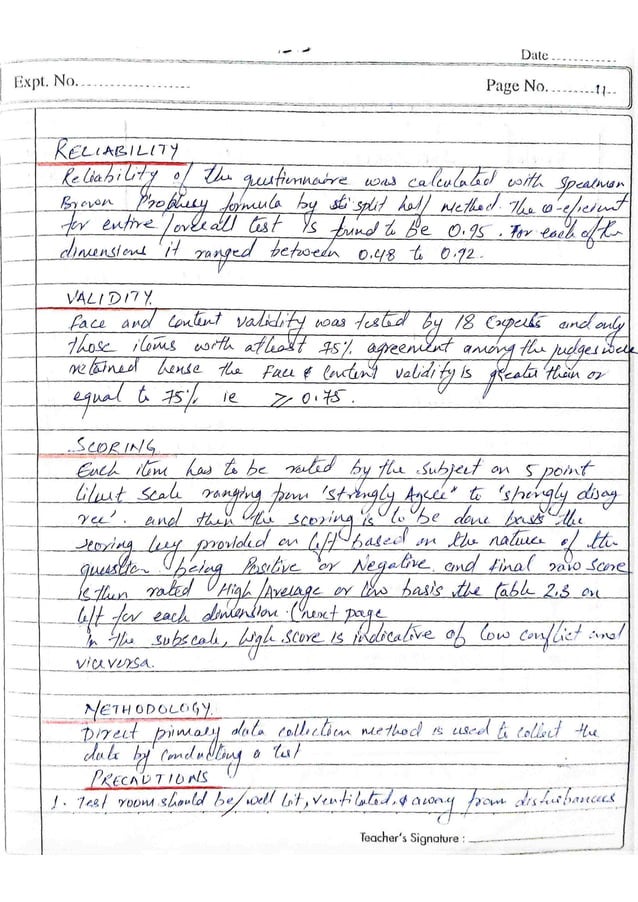 Date ............
Expt. No. ....................
Page No. .........11..
RELIABILITY
Reliability of the questionnaire was calculated with Spearman
Brown Prophesy formula by split half method. The co-eficient
for entire/overall test is found to be 0.95. For each of the
dimensions it ranged between 0.48 to 0.92.
VALIDITY.
Face and Content Validity was tested by 18 Experts and only
those items with atleast 75% agreement among the judges were
retained hense the Face & Content Validity is greater than or
equal to 75% ie ≥ 0.75.
SCORING
Each item has to be rated by the subject on 5 point
likert scale ranging from 'strongly Agree" to 'strongly disag
ree'. and then the scoring is to be done basis the
scoring key provided on left based on the nature of the
question being Positive or Negative, and final raw score
is then rated High/Average or low basis the table 2.3 on
left for each dimension (next page
In the subscale, high score is indicative of low conflict and
viceversa.
METHODOLOGY.
Direct primary data collection method is used to collect the
data by conducting a test
PRECAUTIONS
1. Test room should be/well lit, ventilated, & away from disturbances
Teacher's Signature : ____________